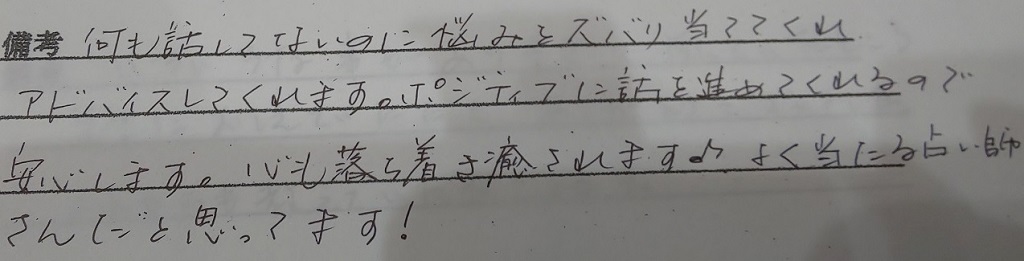 備考 何も話してないのに悩みをズバリ当ててくれ
アドバイスしてくれます。ポジティブに話を進めてくれるので
安心します。心も落ち着き癒されます♪ よく当たる占い師
さんだと思ってます!